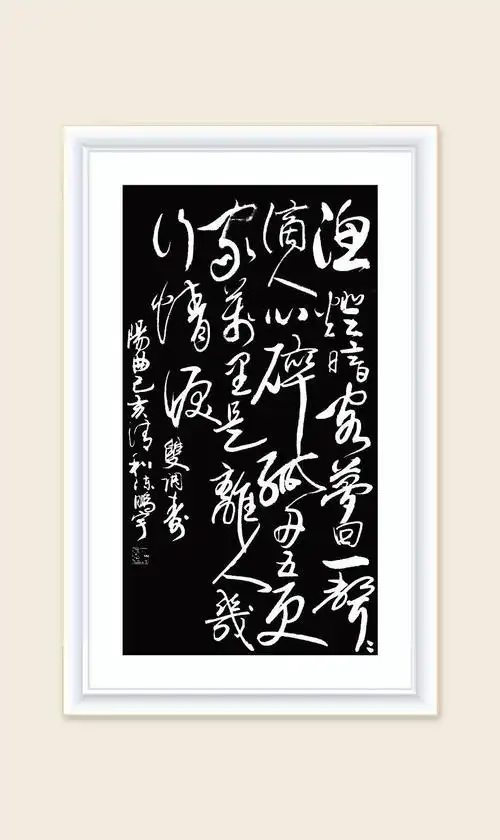 漁燈暗客夢回一聲〻
滴人心碎孤舟五更
家萬里是離人幾
行情淚 雙調壽
陽曲己亥清和陳鵬宇